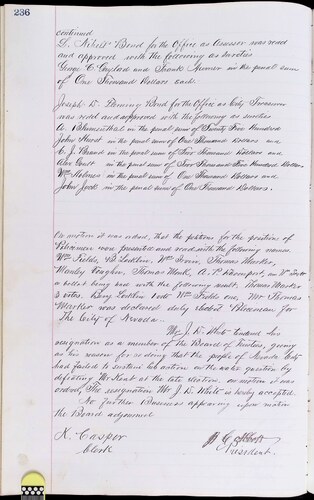 236
continued
Bond for the Office as Assessor was read
and approved with the following as sureties
George C. Gaylord and Frank in the penal sum
of One Thousand Dollars each.
Joseph Bond for the Office as City Treasurer
was read and approved with the following as sureties
A. Blumenthal in the penal sum of Twenty Five Hundred
John Hurst in penal sum of One Thousand Dollars and
C. J. Brand in the penal sum of Two Thousand Dollars and
in the penal sum of Two Thousand Five Hundred Dollars
Wm Holmes in the penal sum of One Thousand Dollars and
John Jack in the penal sum of One Thousand Dollars.
On motion it was ordered, that the petitions for the position of
Policeman were presented and read with the following names
Wm Fields, B Locklin, Wm Irvin, Thomas Marker,
Manley Vaughn, Thomas Monk, A. P. Davenport,
a ballot being had with the following result, Thomas Marker
3 votes. Locklin 1 vote Wm Fields one, Mr Thomas
Marker was declared duly Elected Policeman for
The City of Nevada.
Mr J. D. White tendered his
resignation as a member of the Board of Trustees, giving
as his reason for so doing that the people of Nevada City
had failed to sustain his action on the water question by
defeating Mr Kent at the late election. on motion it was
ordered, The resignation Mr J. D. White is hereby accepted.
No further Business appearing upon motion
the Board adjourned
K. Casper
Clerk
President.